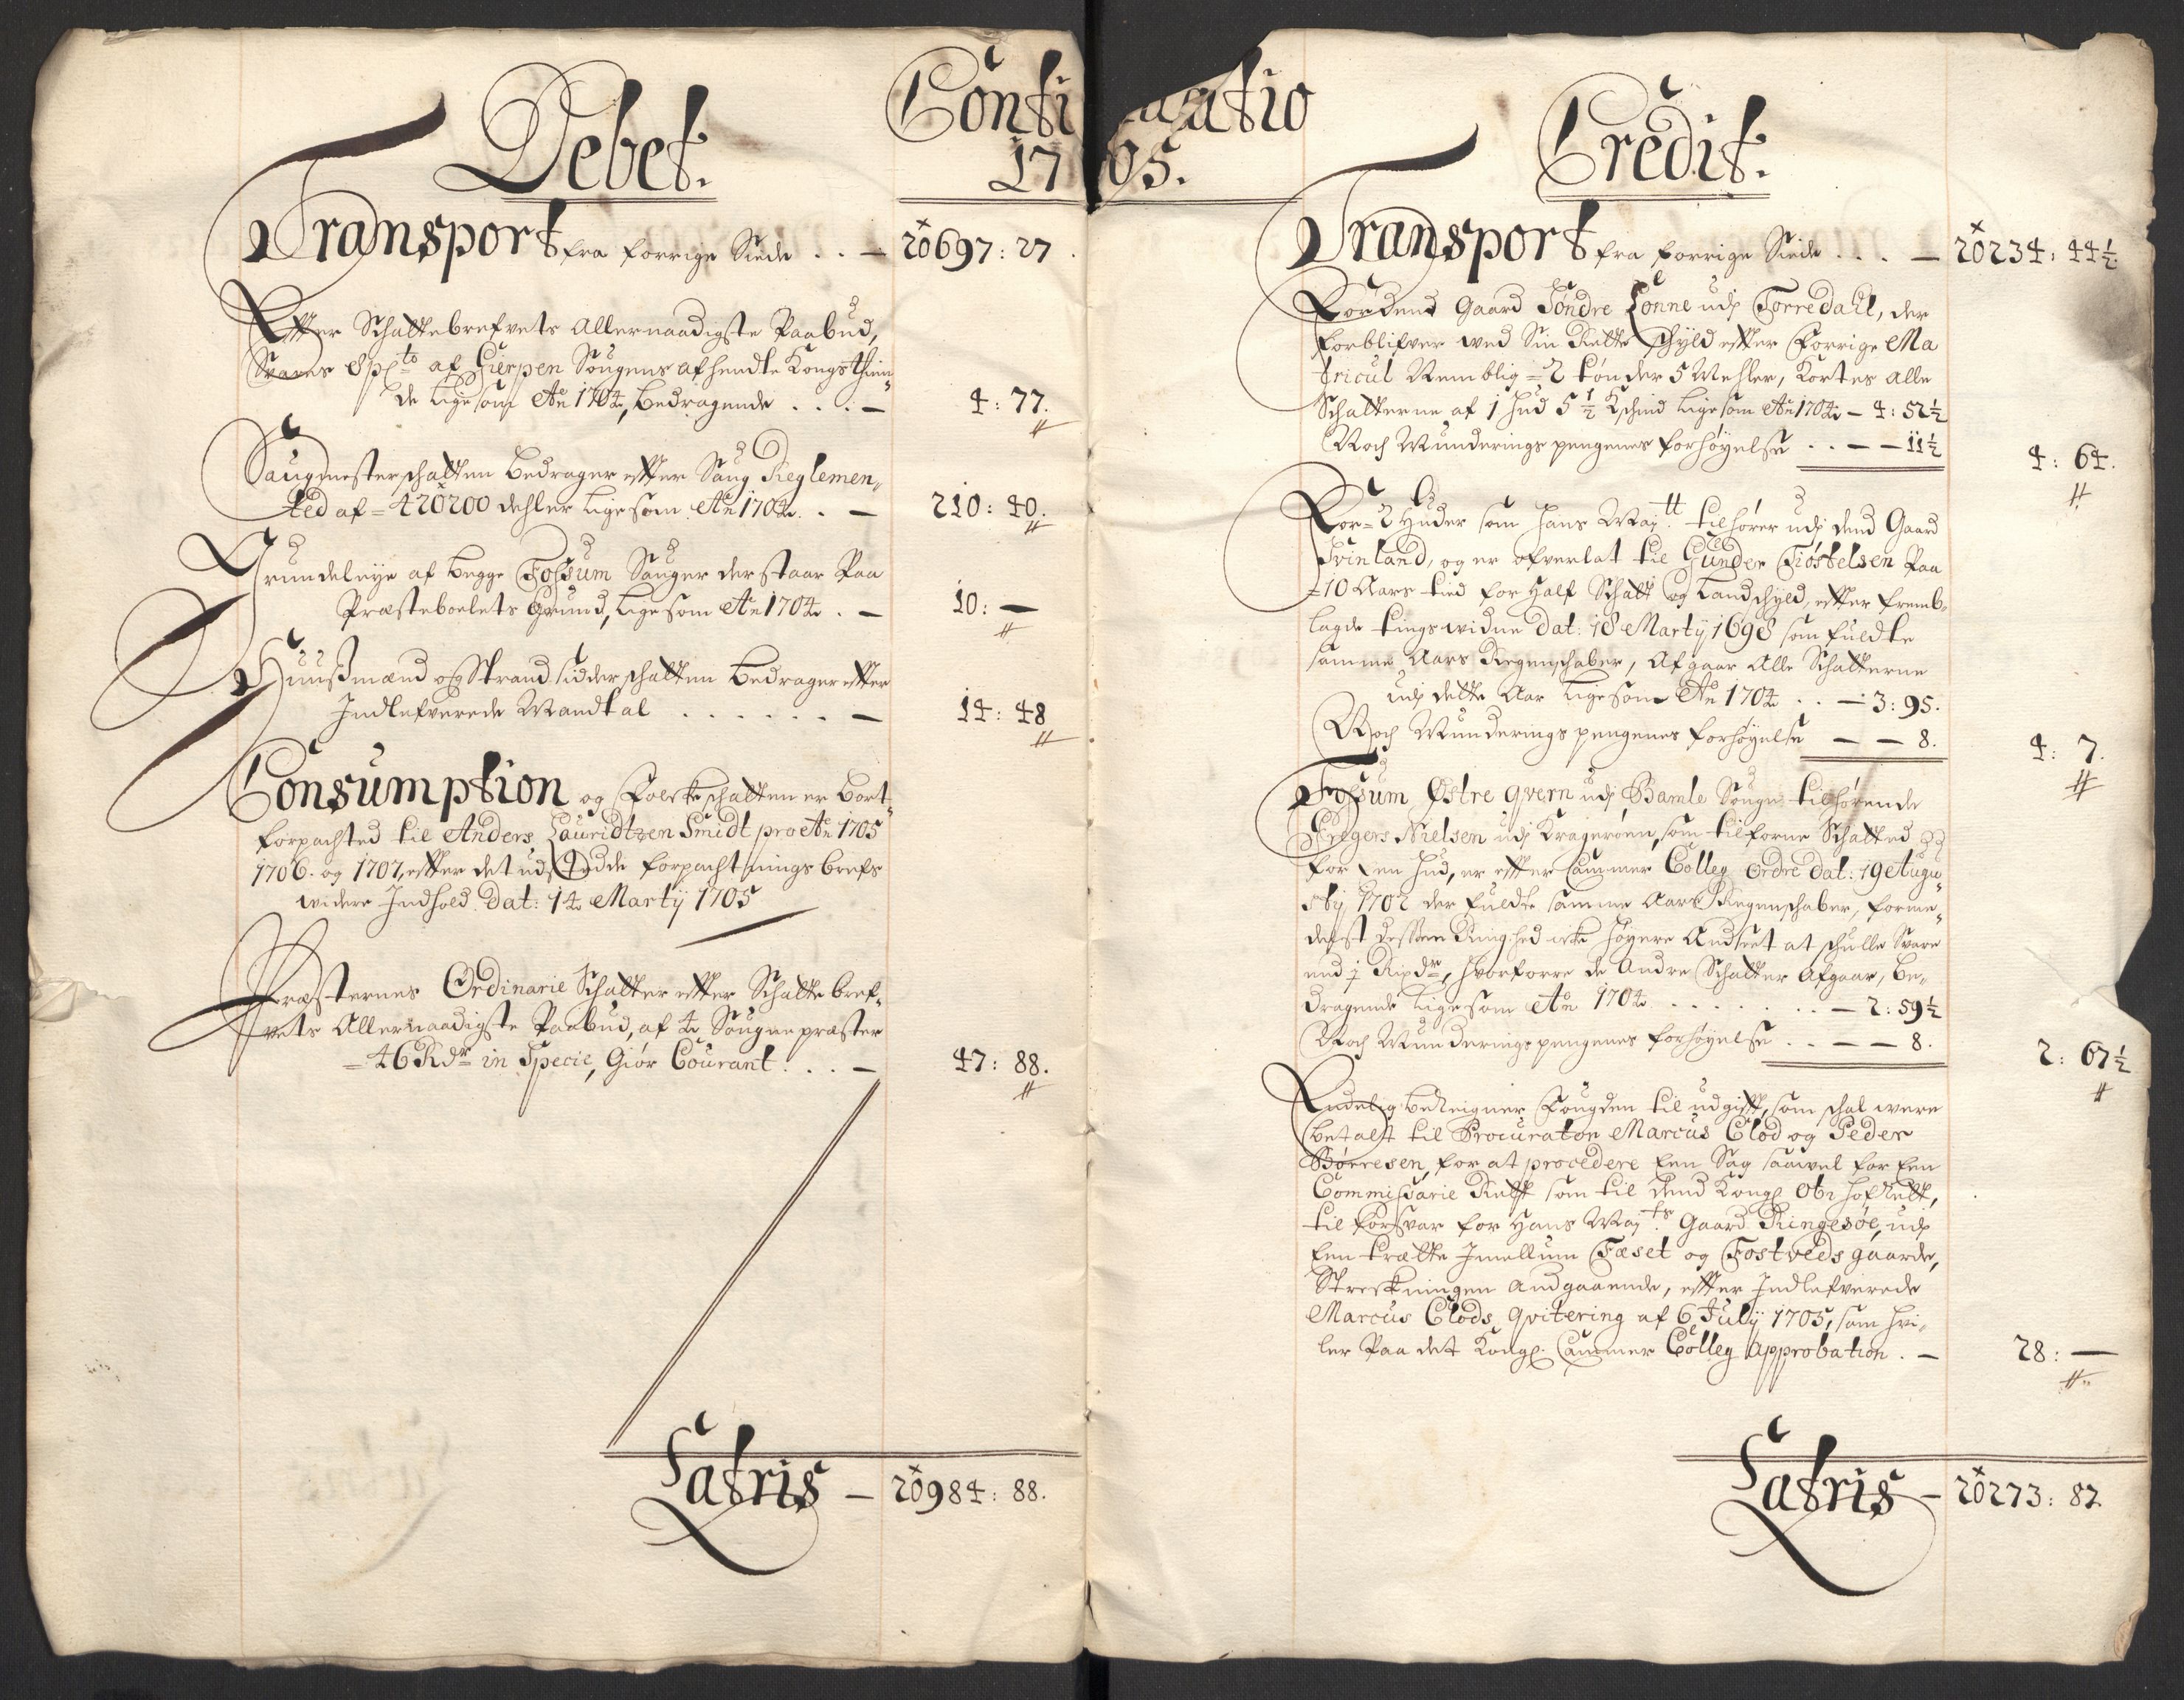 Continuatio
1705.
Debet.
Transport fra forrige Siede . . — 20697: 27
Efter Schattebrefvets Allernaadigste Paabud,
Svares af Gierpen Sougens afhendte Kongs thien¬
de ligesom Ao 1704, Bedragende . . . — 4: 77.
Saugmesterschatten Bedrager efter Saug Reglemen¬
ted af = 420200 dehler ligesom Ao 1704 . . — 210: 40.
Grundeleye af begge Fossum Sauger der staar Paa
Præsteboelets Grund, ligesom Ao 1704 . — 10: —
Huusmænd og Strandsidder schatten Bedrager efter
Indlefverede Mandtal . . . . . . — 14: 48
Consumption og Folcke schatten er Bort¬
forpachted til Anders Lauridtzen Smidt pro Ao 1705
1706. og 1707, efter det udstedde forpachtnings brefs
widere Indhold Dat: 14 Martij 1705
Præsternes Ordinarie Schatter efter Schatte bref¬
vets Allernaadigste Paabud, af 4 Sougnepræster
= 46 Rdr in Specie, Giør Courant . . . — 47: 88.
Latris — 20984: 88.
Credit.
Transport fra forrige Siede . . . — 20234: 44½
For dend Gaard Søndre Lonne udj Torredahl, der
forblifver wed Sin Rette schyld efter Forrige Ma
tricul Nemblig = 2 tønder 5 Mehler, Kortes alle
Schatterne af 1 Hud 5½ Kschind ligesom Ao 1704 — 4: 52½
Noch Munderings pengenes forhøyelse . . — — 11½
4: 64.
For = 2 Huder som Hans Maytt tilhører udj dend Gaard
Svinland, og er ofverlat til Gunder Tiøstelsen Paa
= 10 Aars tid for Half Schatt og Landschyld, efter fremb¬
lagde tingswidne Dat: 18 Martij 1698 som fuldte
samme Aars Regenschaber, Afgaar Alle Schatterne
udj dette Aar ligesom Ao 1704 . . — 3: 95.
Noch Munderings pengenes forhøyelse — — 8.
4: 7.
Fossum Østre qvern udj Bamle Sougn tilhørende
Gregers Nielsen udj Kragerøen, som tilforne Schatted
for Een Hud, er efter Cammer Colleg Ordre Dat: 19 Augu¬
stij 1702 der fuldte samme Aars Regenschaber, forme¬
delst dessen Ringhed icke høyere Andseet at schulle Svare
end j Rixdr, hvorforre de Andre Schatter Afgaar, be¬
dragende ligesom Ao 1704 . . . . . . — 2: 59½
Noch Munderings pengenes forhøyelse . . — — 8.
2: 67½
Endelig beReigner Fougden til udgift, som schal were
betalt til Procurator Marcus Clod og Peder
Børresen, for at procedere Een Sag saawel for Een
Commissarie Rett som til dend Kongl Obr Hof Rett,
til forsvar for Hans Mayts Gaard Ringesøe, udj
Een trætte Imellum Fæset og Fostveds gaarde,
Streckningen Andgaaende, efter Indlefverede
Marcus Clods qvitering af 6 July 1705, som hvi¬
ler Paa det Kongl. Cammer Colleg Approbation . — 28: —
Latris — 20273: 82.